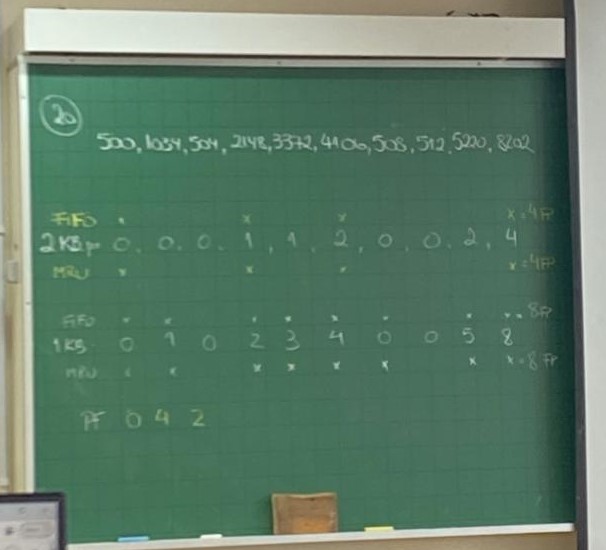 20
500, 1034, 504, 2148, 3372, 4106, 508, 512, 5220, 8202
FIFO x x x x = 4 FP
2KB p 0, 0, 0, 1, 1, 2, 0, 0, 2, 4
MRU x x x x = 4 FP
FIFO x x x x x x x x = 8 FP
1KB 0 1 0 2 3 4 0 0 5 8
MRU x x x x x x x x = 8 FP
PF 0 4 2